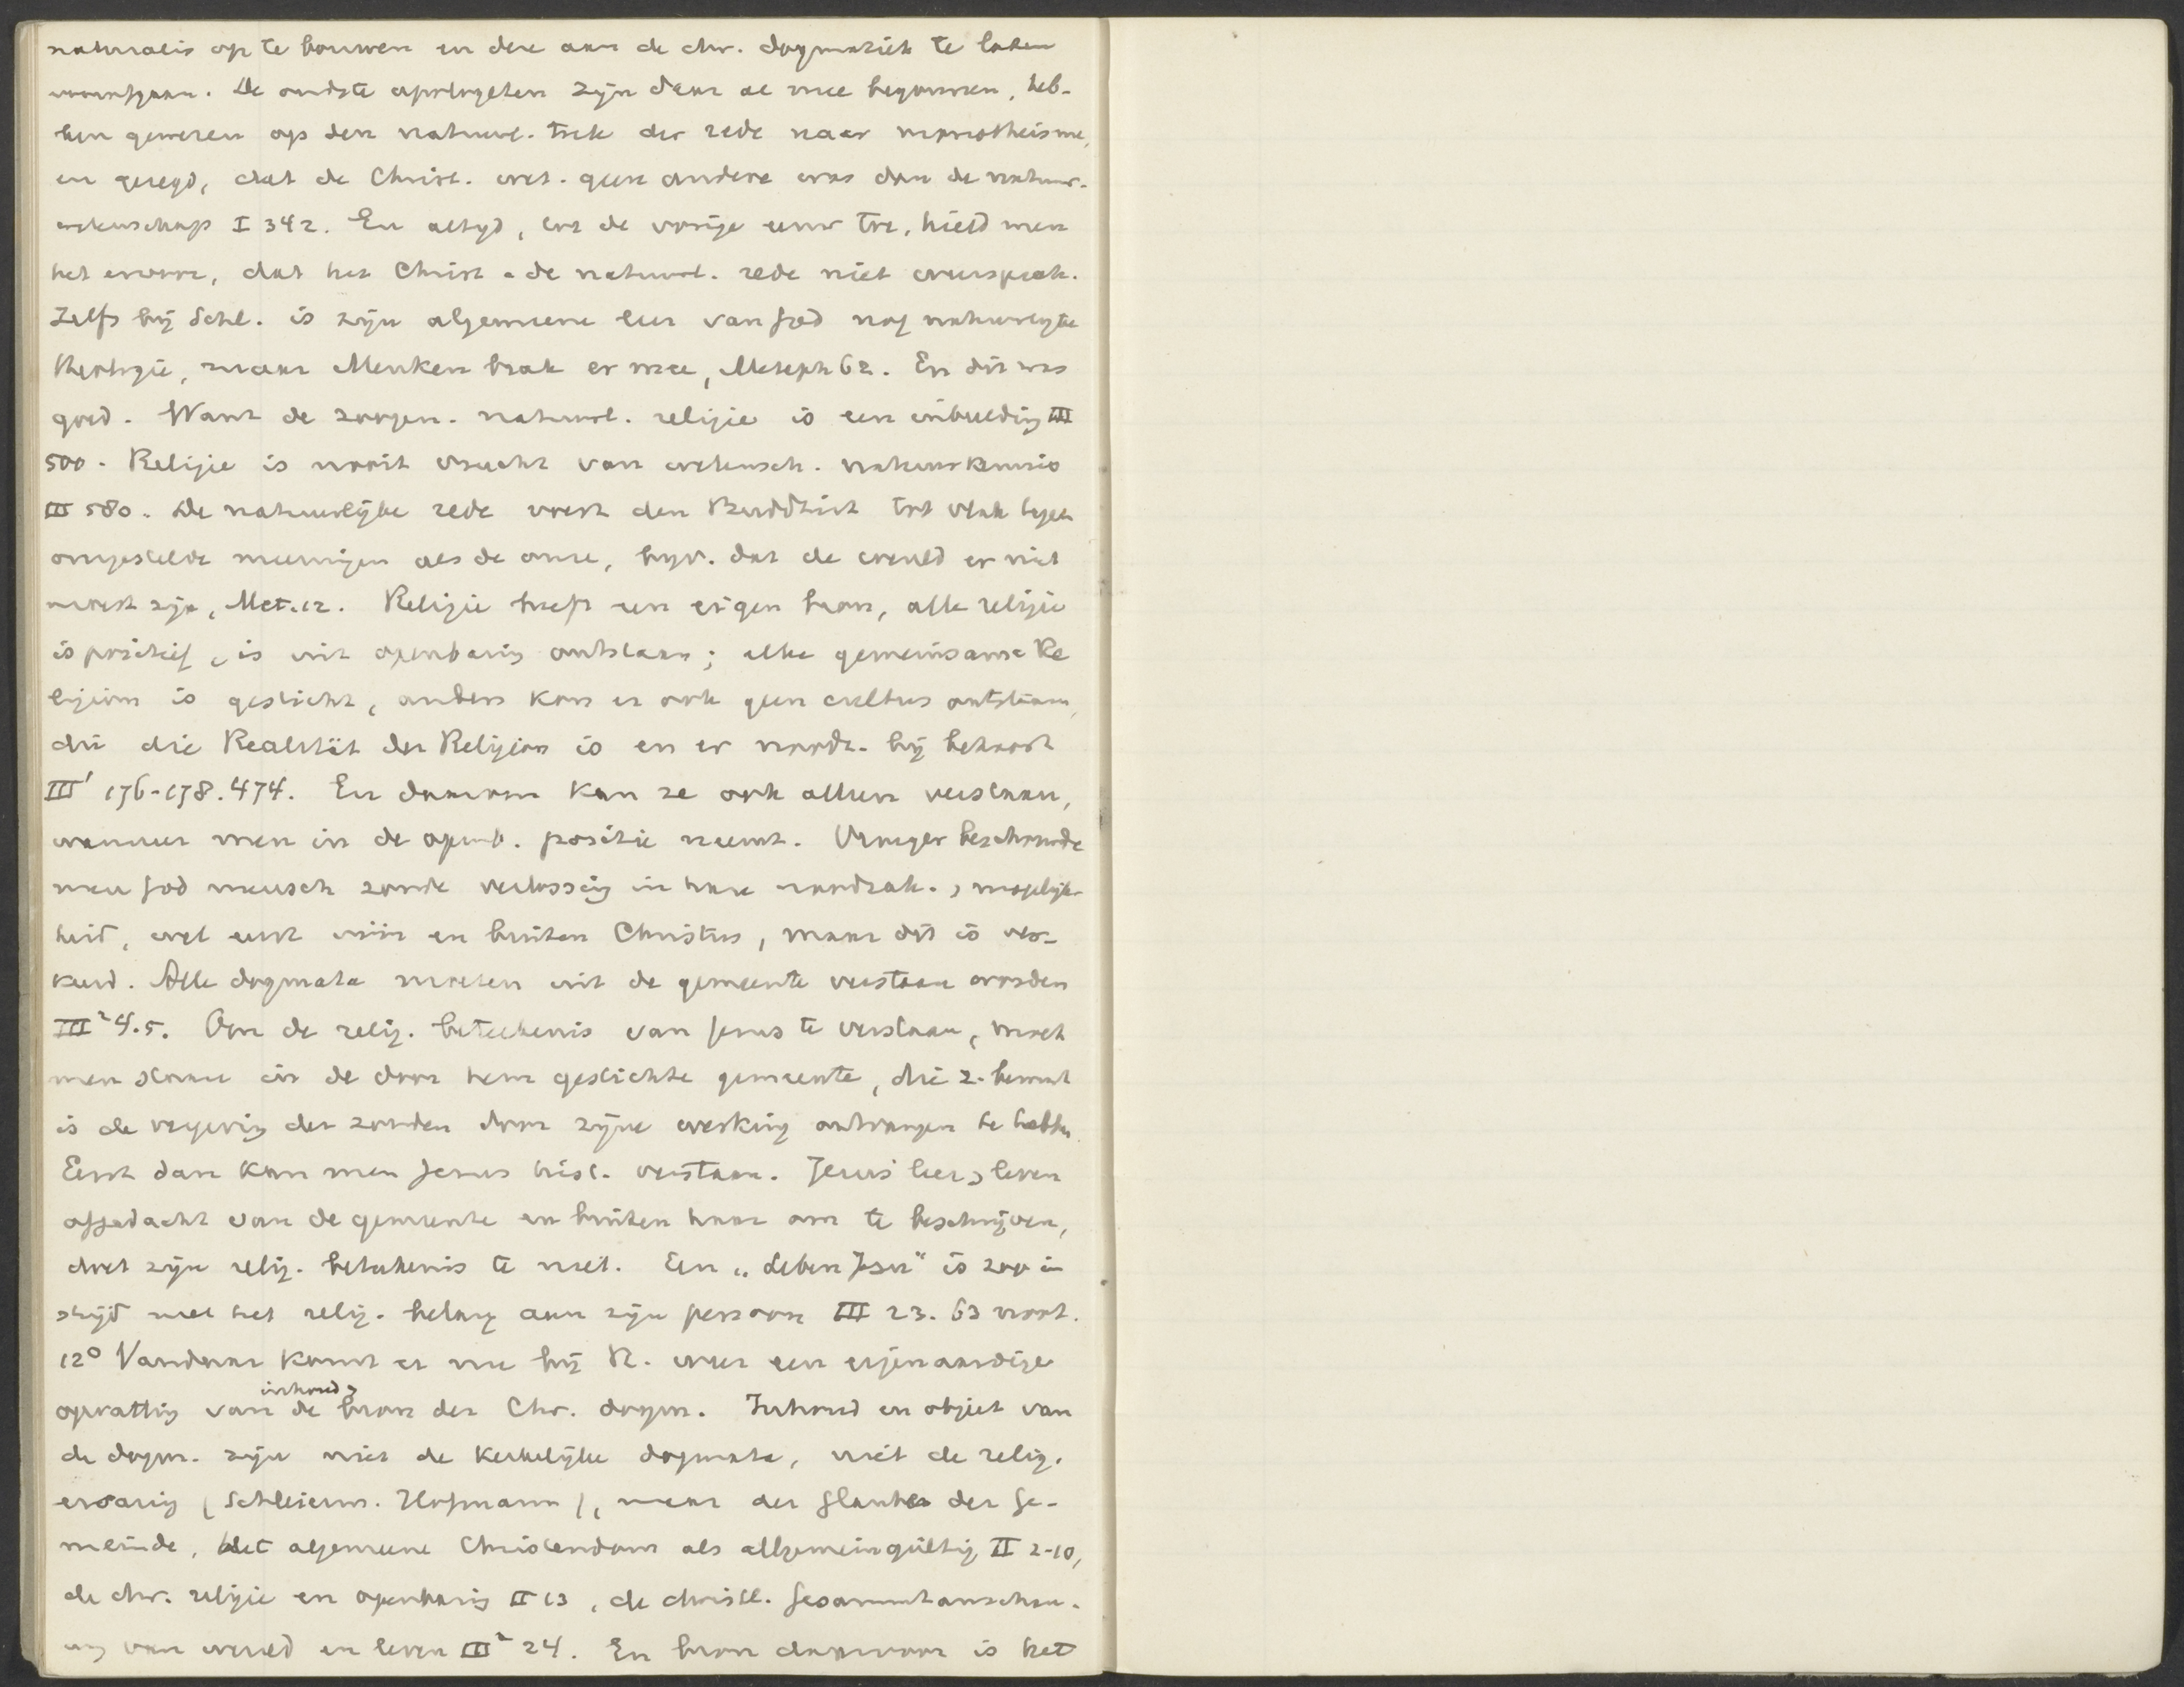 naturalis op te bouwen en deze aan de chr. dogmatiek te laten
voorafgaan. De oudste apologeten zijn daar al mee begonnen, heb-
ben gewezen op den natuurl. trek der rede naar monotheisme,
en gezegd, dat de Christ. wet. geen andere was dan de natuur-
wetenschap I 342. En altijd, tot de vorige eeuw toe, hield men
het ervoor, dat het Christ. de natuurl. rede niet weersprak.
Zelfs bij Schl. is zijn algemeene leer van God nog natuurlijke
theologie, maar Menken brak er mee, Metaph 62. En dit was
goed. Want de zoogen. natuurl. religie is een inbeelding III
500. Religie is nooit vrucht van wetensch. natuurkennis
III 580. De natuurlijke rede voert den Buddhist tot vlak tegen
overgestelde meeningen als de onze, bijv. dat de wereld er niet
moest zijn, Met. 12. Religie heeft een eigen bron, alle religie
is positief, is uit openbaring ontstaan; elke gemeinsame Re
ligion is gesticht, anders kon er ook geen cultus ontstaan,
die die Realität der Religion is en er noodz. bij behoort
III¹ 176-178. 474. En daarom kan ze ook alleen verstaan,
wanneer men in de openb. positie neemt. Vroeger beschouwde
men God mensch zonde verlossing in hare noodzak. , mogelijk-
heid, wel eerst vóór en buiten Christus, maar dit is ver-
keerd. Alle dogmata moeten uit de gemeente verstaan worden
III² 4.5. Om de relig. beteekenis van Jezus te verstaan, moet
men staan in de door hem gestichte gemeente, die z. bewust
is de vergeving der zonden door zijne werking ontvangen te hebben.
Eerst dan kan men Jezus hist. verstaan. Jezus' leer , leven
afgedacht van de gemeente en buiten haar om te beschrijven,
doet zijn relig. beteekenis te niet. Een „Leben Jesu" is zoo in
strijd met het relig. belang aan zijn persoon III 23. 63 noot.
12° Vandaar komt er nu bij R. weer een eigenaardige
opvatting van de inhoud , bron der Chr. dogm. Inhoud en object van
de dogm. zijn niet de kerkelijke dogmata, niet de relig.
ervaring (Schleierm. Hofmann), maar der Glaube der Ge-
meinde, het algemeene Christendom als allgemeingültig II 2-10,
de chr. religie en openbaring II 13, de christl. Gesammtanschau-
ung van wereld en leven III² 24. En bron daarvoor is het